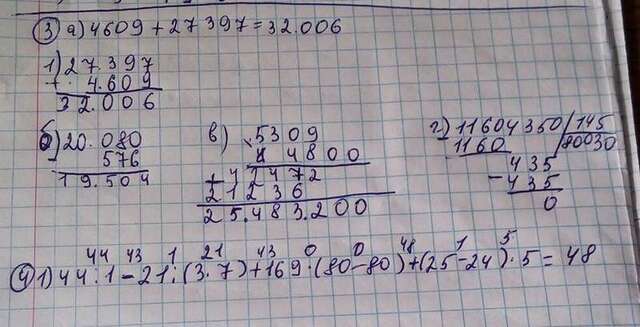 ③ а) 4609 + 27397 = 32.006
1) 27.397
+ 4.609
32.006
б) 20.080
- 576
19.504
в) 5309
× 4800
+ 42472
21236
25.483.200
г) 11604350 / 145
1160 80030
435
- 435
0
44 43 1 21 43 0 0 48 1 5
④ 1) 44 : 1 - 21 : (3 . 7) + 169 : (80 - 80) + (25 - 24) . 5 = 48